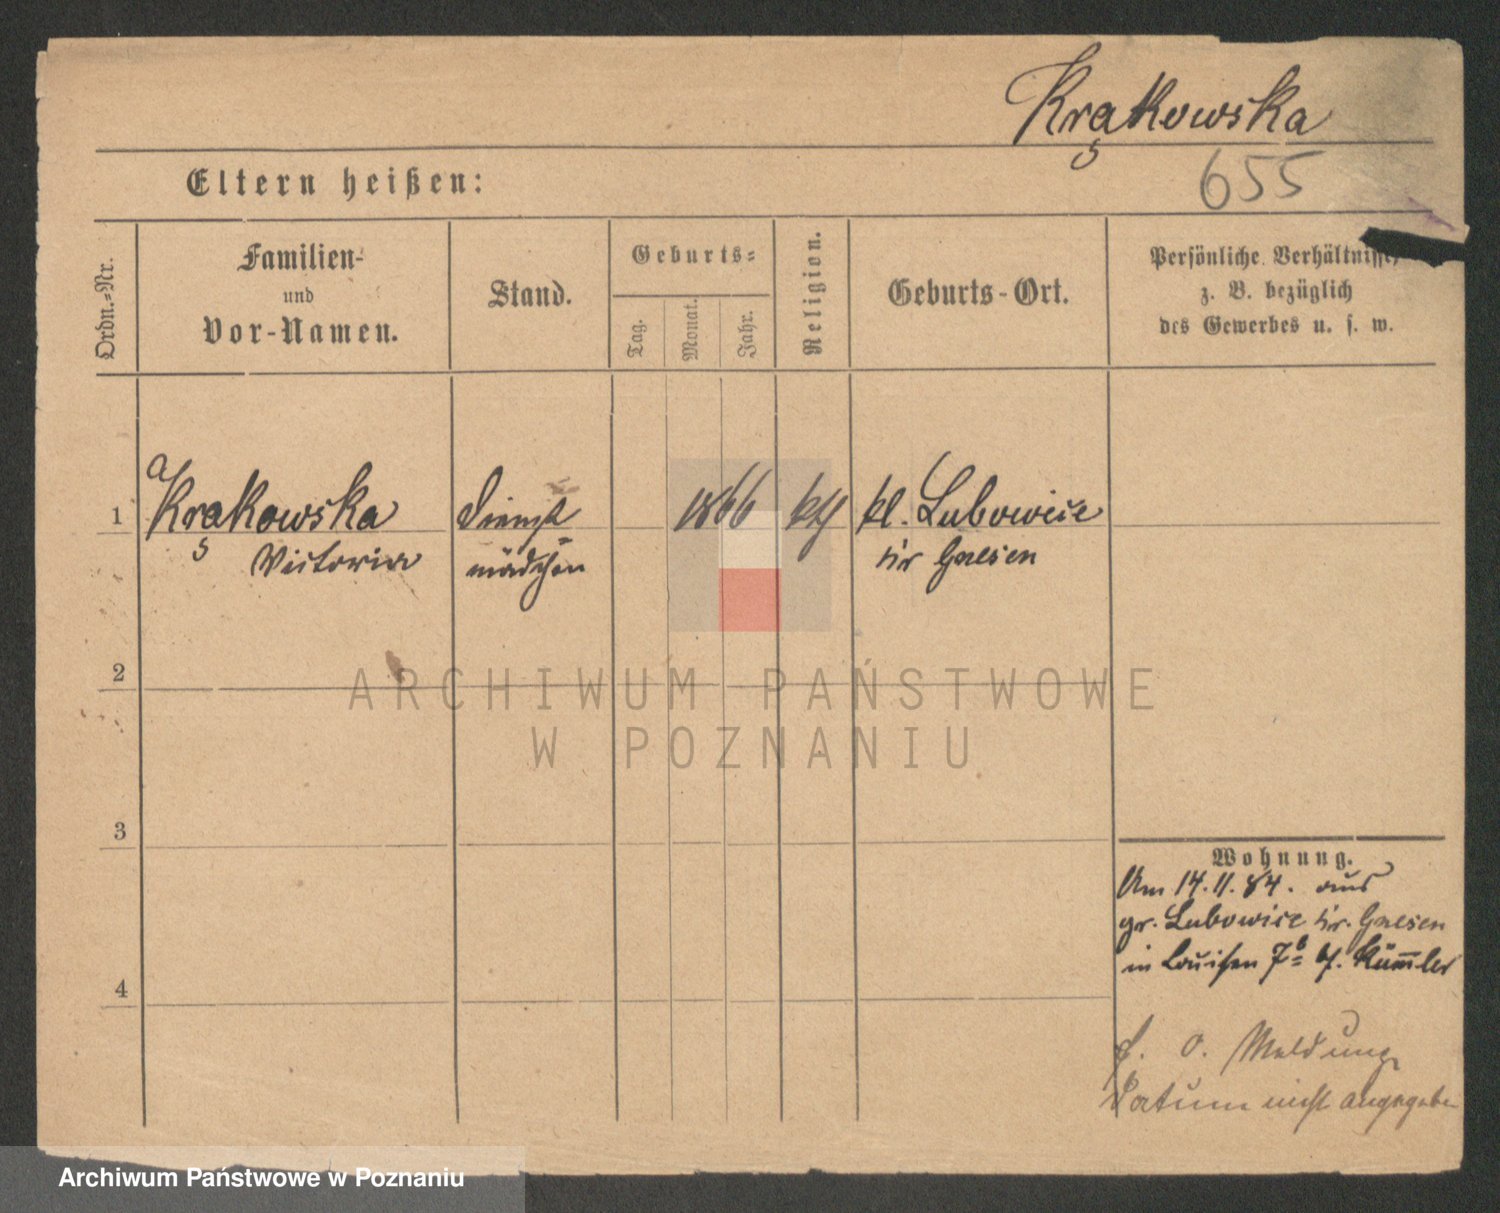 Krąkowska
655
Eltern heißen:
Ordn.=Nr.
Familien-
und
Vor-Namen.
Stand.
Geburts=
Tag.
Monat.
Jahr.
Religion.
Geburts-Ort.
Persönliche Verhältnisse,
z. B. bezüglich
des Gewerbes u. s. w.
1
a
Krąkowska
Victoria
Dienst
mädchen
1866
kth
kl. Lubowice
Kr Gnesen
2
ARCHIWUM PAŃSTWOWE
W POZNANIU
3
4
Wohnung.
Am 14.11.84. aus
gr. Lubowice Kr. Gnesen
in Louisen 7b bf. Kümler
o. Meldung
Datum nicht angegeben
Archiwum Państwowe w Poznaniu